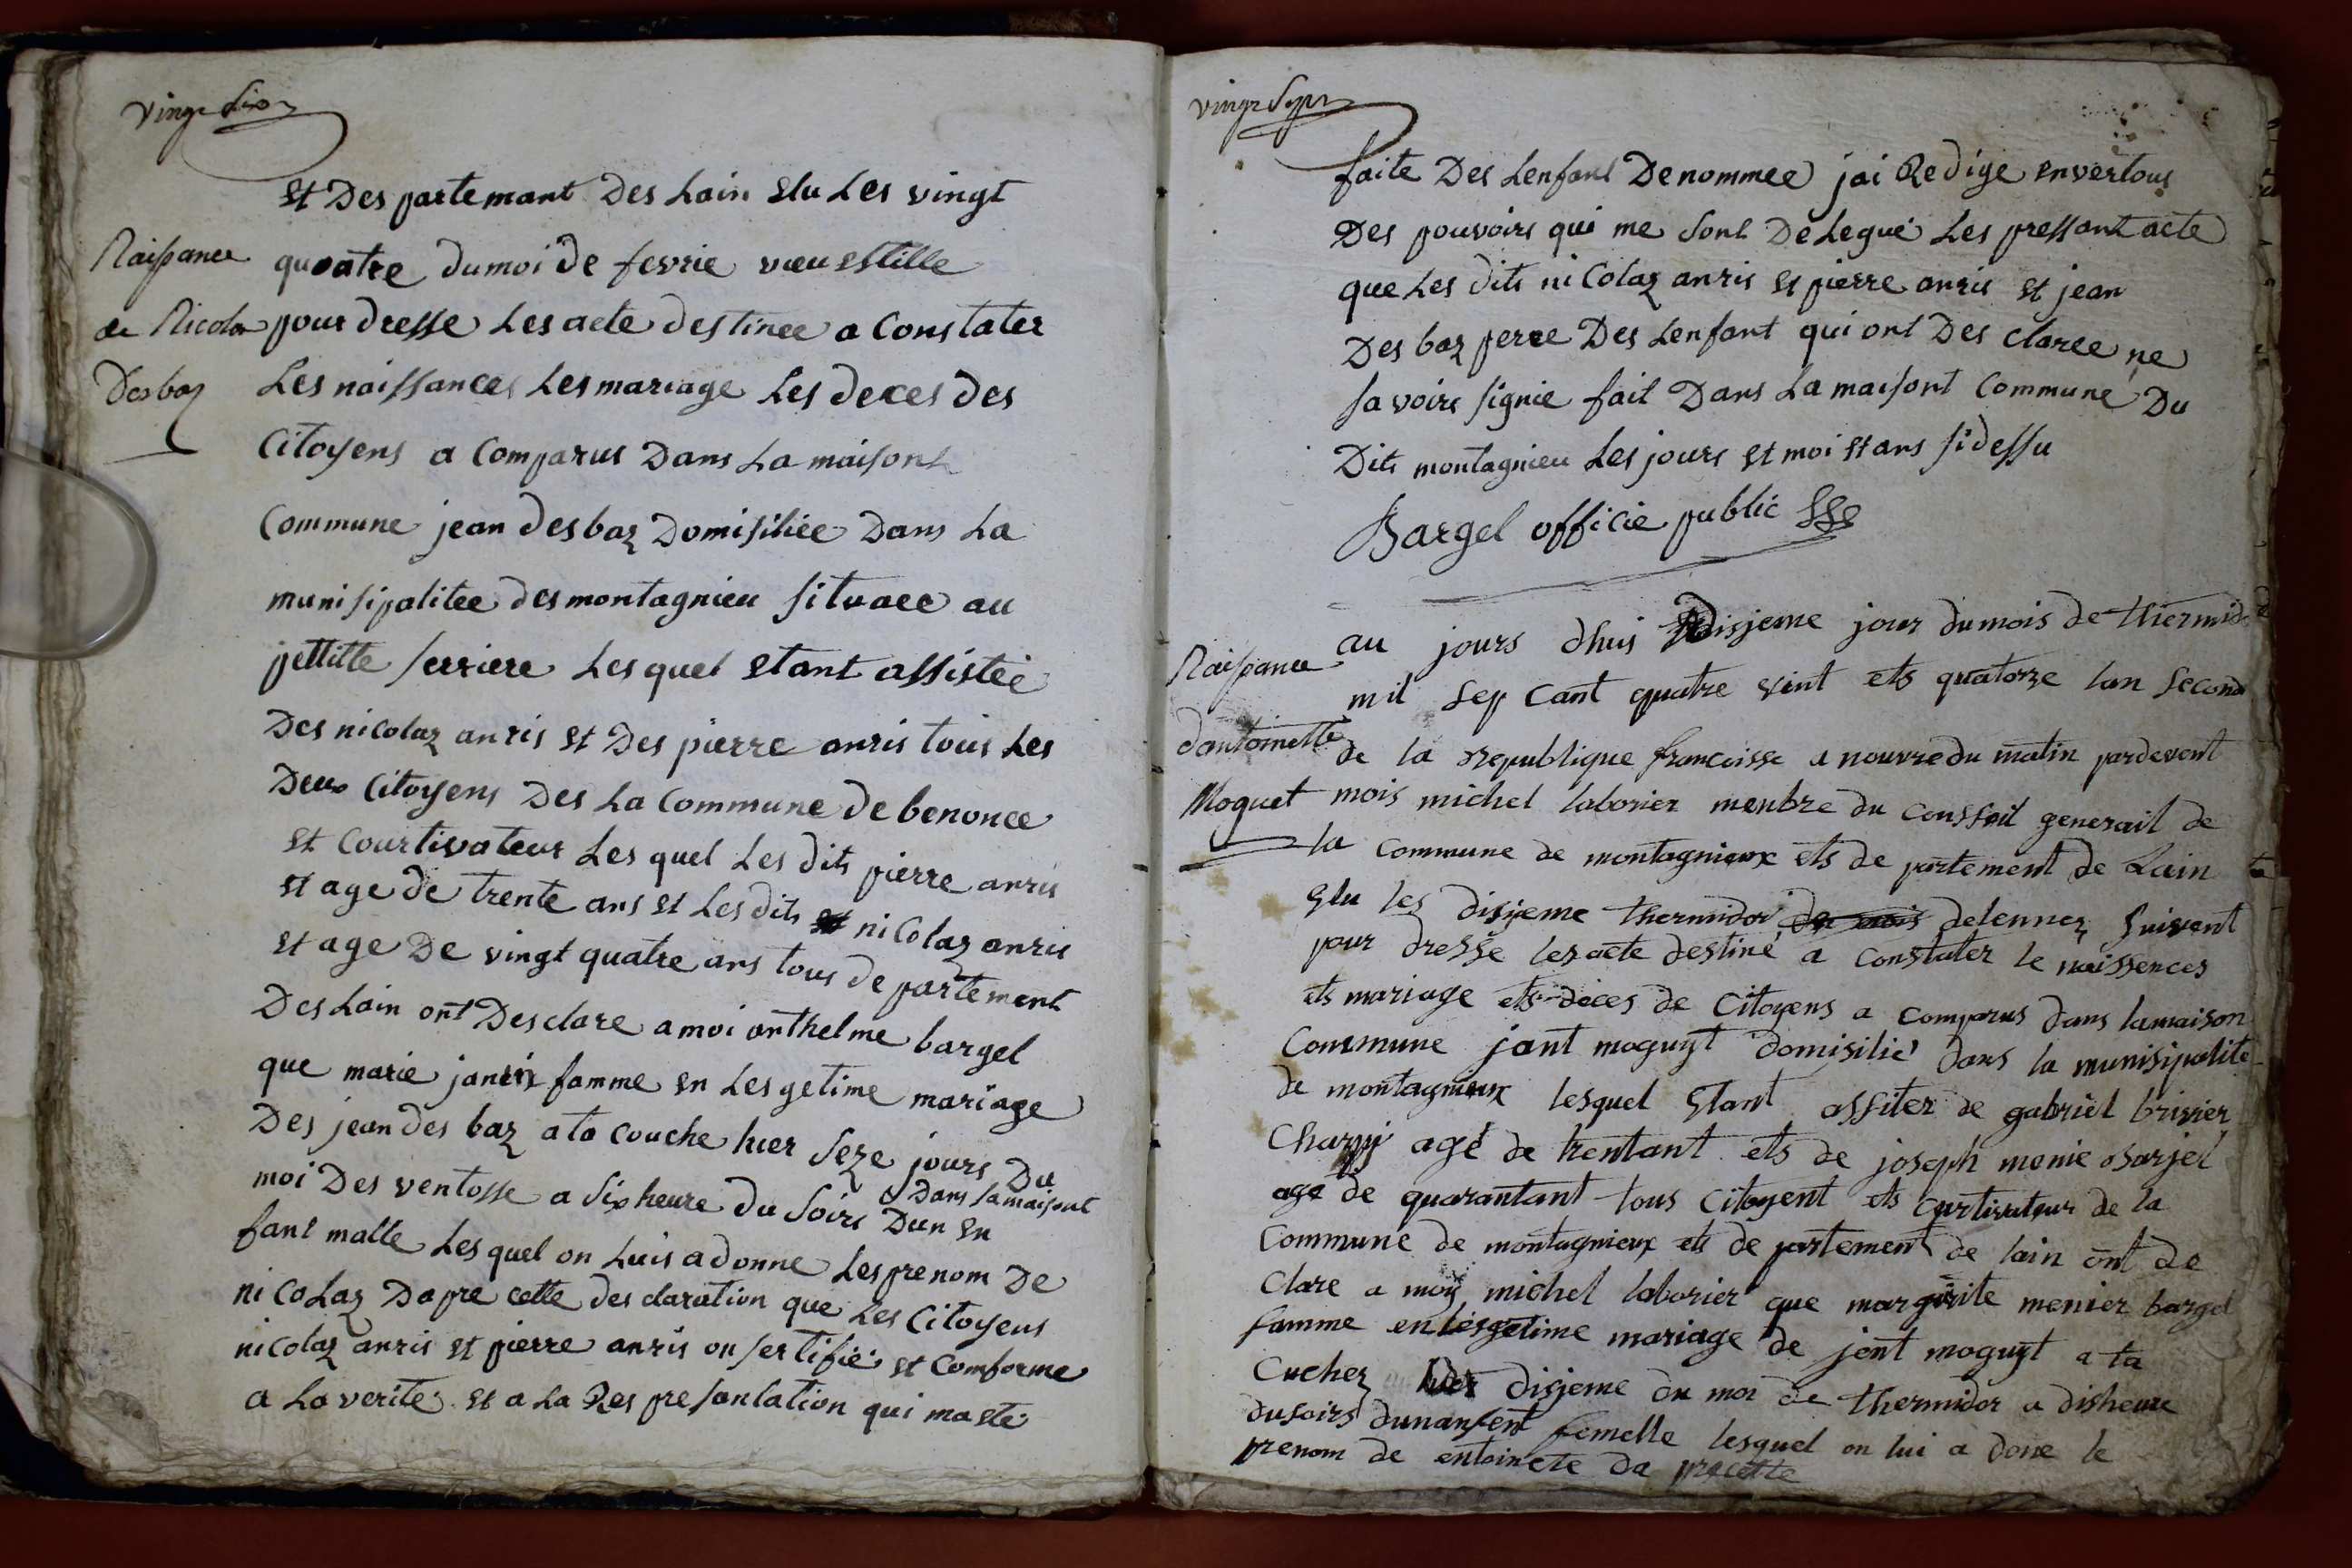 vingt Six
Et Des partemant Des Lain Elu Les vingt
Naissance
de Nicolas
Desbaz
quoatre dumoi de fevrie vieu Estille
pour dresse Les acte destinee a Constater
Les naissances Les mariage Les deces des
Citoyens a Comparus Dans La maisont
Commune jean desbaz Domisiliée Dans La
munisipalitee des montagnieu situaee au
pettitte serriere Les quel Etant assistée
Des nicolaz anris Et Des pierre anris tous Les
Deux Citoyens Des La Commune de benonce
Et Courtivateur Les quel Les dits pierre anris
Et age de trente ans Et Les dits nicolaz anris
Et age De vingt quatre ans tous de partement
Des Lain ont Desclare a moi anthelme bargel
que marie janin famme En Les getime mariage
Des jean des baz ata Couche hier Seze jours Du
moi Des ventosse a Six heure du Soirs Dans sa maisont Dun En
fant malle Les quel on Luis a donne Les prenom De
nicolaz Dapre cette des claration que Les Citoyens
nicolaz anris Et pierre anris on sertifié Et Comforme
a La verité Et a La Res presantation qui maete
vingt Sept
faite Des Lenfant Denommee jai Redige En vertous
Des pouvoirs qui me Sont De Legué Les pressant acte
que Les dits nicolaz anris Et pierre anris Et jean
Des baz perre Des Lenfant qui ont Des claree ne
savoirs signie fait Dans La maisont Commune Du
Dits montagnieu Les jours Et moi Et ans sidessu
Bargel officie public
Naissance
dantoinette
Moguet
au jours dhuis disjeme jour du mois de thermidor
mil sep cant quatre vint ets quatorze lan second
de la republique francaisse a nouvre du matin pardevent
mois michel laborier menbre du Conssoil generail de
la Commune de montagnieux ets de partement de Lain
Elu les disjeme thermidor de mois delennez suivent
pour dresse les acte destiné a constater le naissences
ets mariage ets deces de Citoyens a comparus dans lamaison
Commune jant moguyt domisilié dans la munisipalite
de montagnieux lesquel Etant assitez de gabriel brivier
Charpy agé de trentant ets de joseph menie Barjel
age de quarantant tous Citoyent ets Curtivateur de la
Commune de montagnieux ets de partement de lain ont de
Clare a moy michel laborier que margurite menier bargel
famme en lesgetime mariage de jent moguyt a ta
Cuchez hier disjeme du moi de thermidor a disheure
du soirs dunanfent femelle lesquel on lui a done le
prenom de entoinete da precette